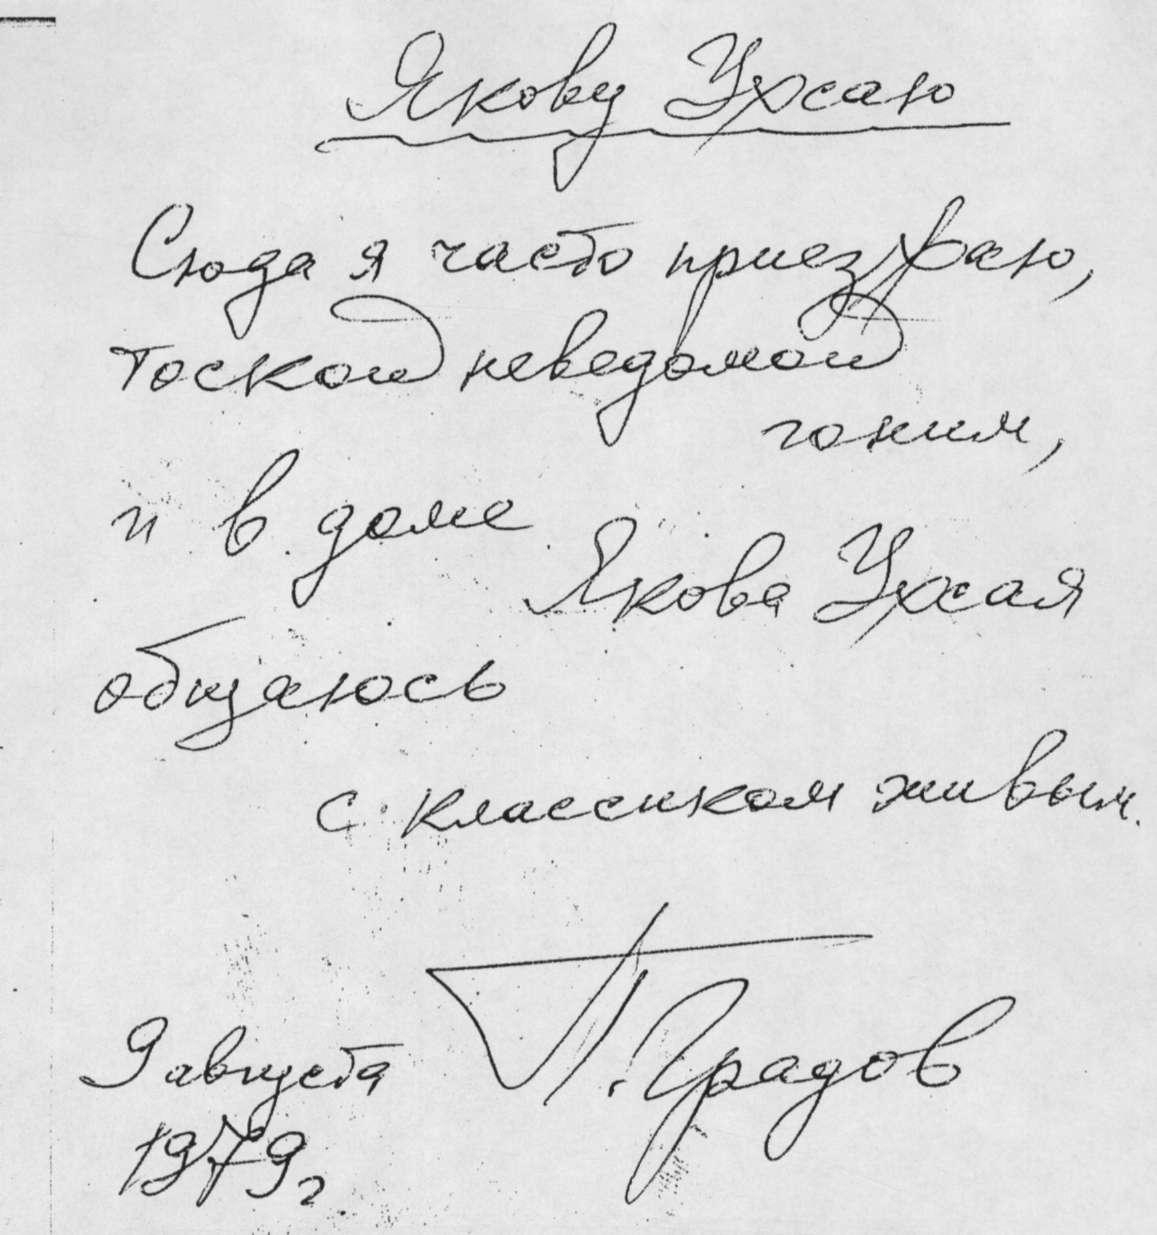 Якову Ухсаю
Сюда я часто приезжаю,
тоской неведомой
гоним,
и в доме
Якова Ухсая
общаюсь
с классиком живым.
П. Градов
9 августа
1979 г